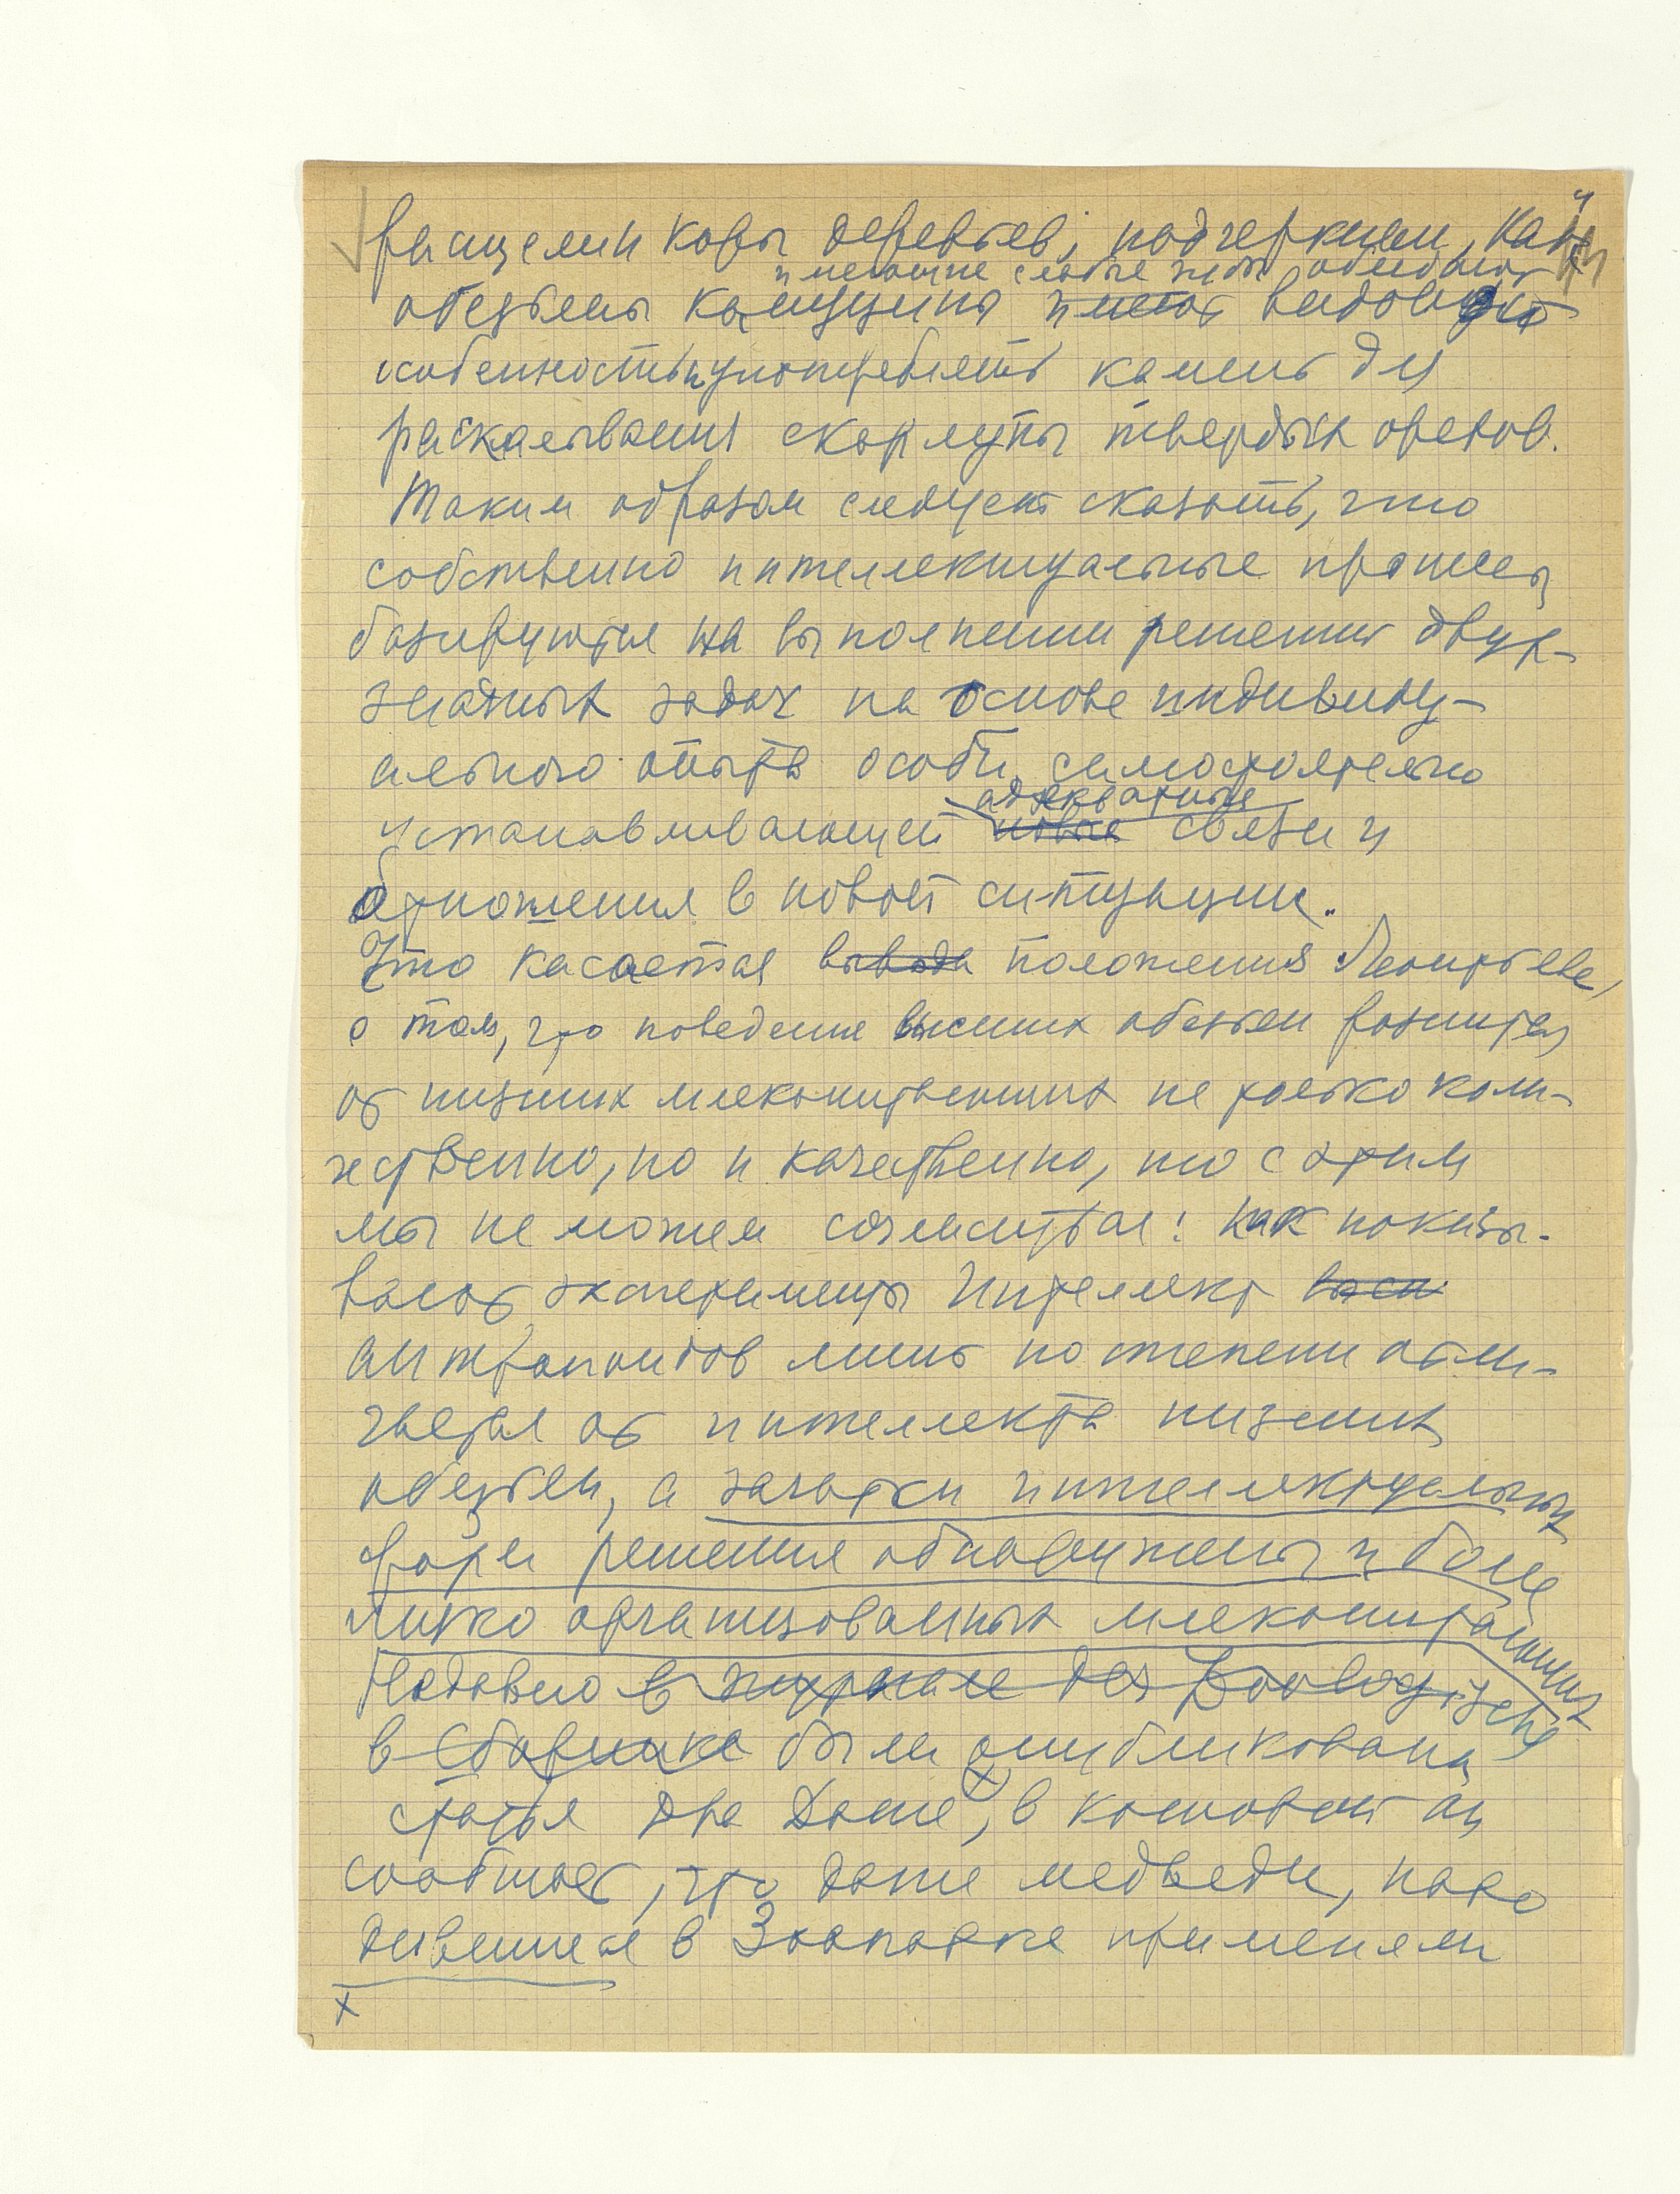 расщелин коры деревьев, подчеркнем, как
имеющие слабые зубы обладают
обезьяны капуцины имеют видовую
особенность употреблять камень для
раскалывания скорлупы твердых орехов.
Таким образом следует сказать, что
собственно интеллектуальные процессы
базируются на выполнении решения двух-
фазных задач на основе индивиду-
ального опыта особи, самостоятельно
адэкватные
устанавливающей новые связи и
отношения в новой ситуации.
Что касается вывода положения Леонтьева,
о том, что поведение высших обезьян разнится
от низших млекопитающих не только коли-
чественно, но и качественно, то с этим
мы не можем согласиться: как показы-
вают эксперименты Интеллект
антропоидов лишь по степени отли-
чается от интеллекта низших
обезьян, а зачатки интеллектуальных
форм решения обнаружены и более
низко организованных млекопитающих
Недавно в журнале der Zoologische
в Сборнике были опубликована
статья два Дате, в которой он
сообщает, что даже медведи, нахо
дившиеся в Зоопарке применяли
x